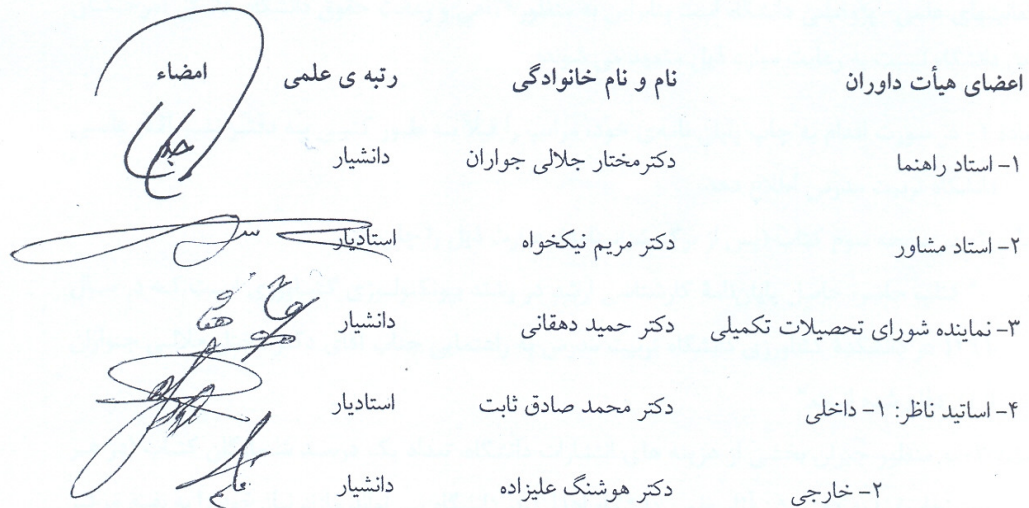 اعضای هیأت داوران نام و نام خانوادگی رتبه ی علمی امضاء
۱- استاد راهنما دکترمختار جلالی جواران دانشیار
۲- استاد مشاور دکتر مریم نیکخواه استادیار
۳- نماینده شورای تحصیلات تکمیلی دکتر حمید دهقانی دانشیار
۴- اساتید ناظر: ۱- داخلی دکتر محمد صادق ثابت استادیار
۲- خارجی دکتر هوشنگ علیزاده دانشیار